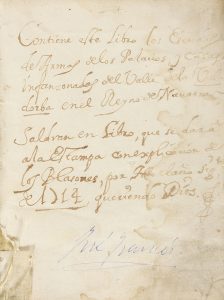 Contiene este Libro los
de Armas de los Palacios, y
infanzonados del Valle de
dorba en el Reyno de Navarra
Saldran en Libro, que se dara
a la Estampa con explicacion de
los Blasones, por
de 1714, queriendo Dios.